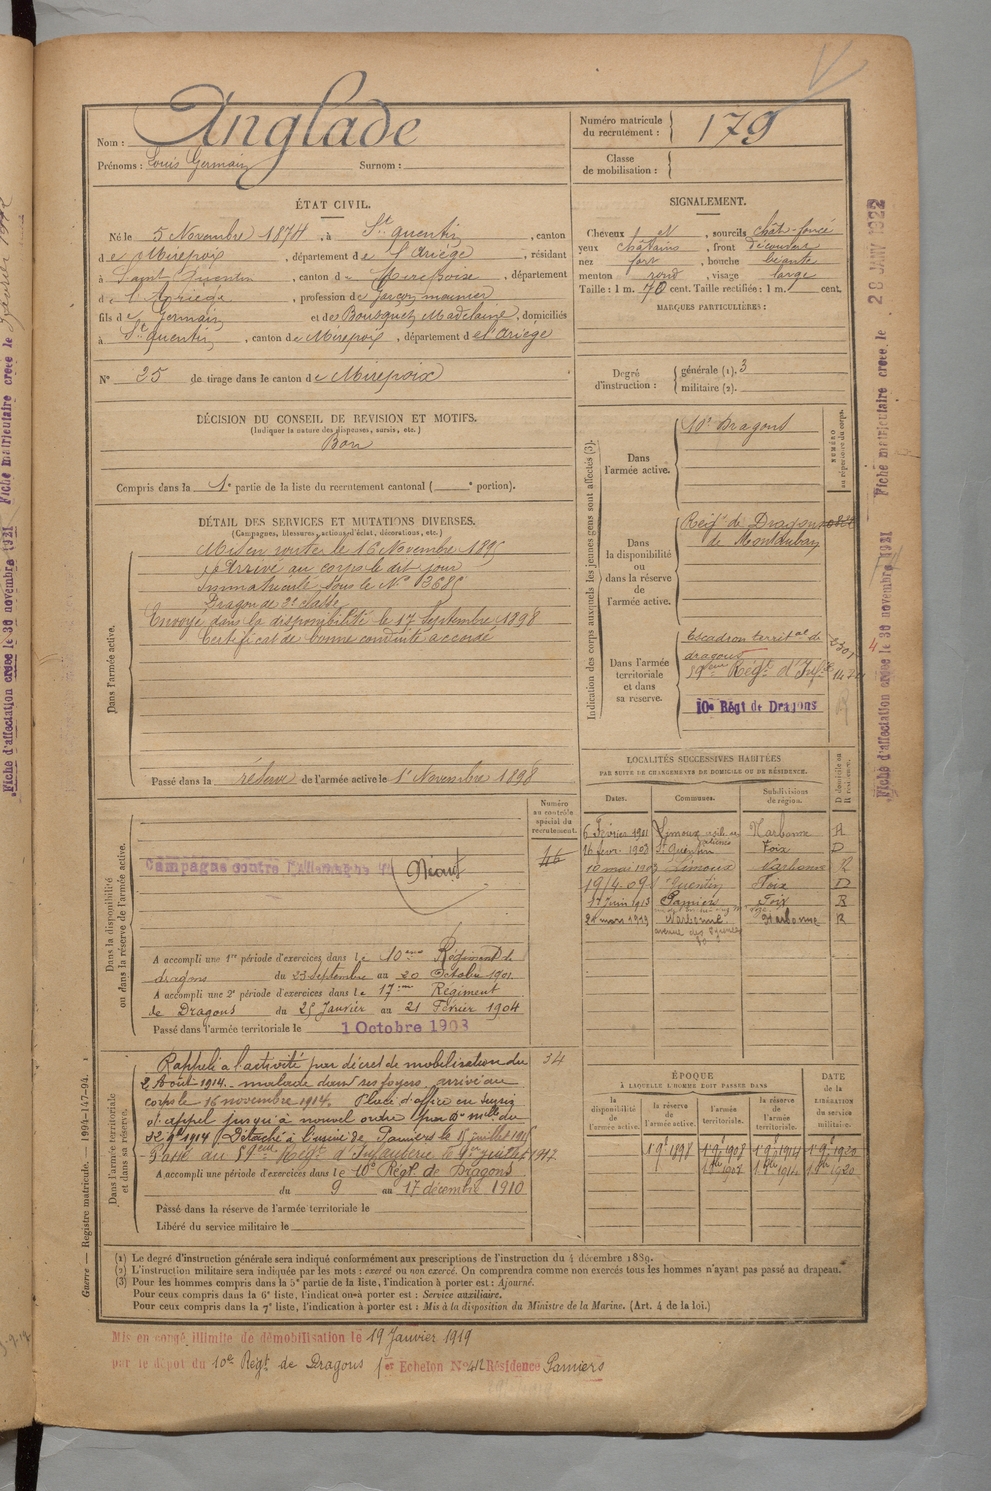 Nom : Anglade
Prénoms : Louis Germain Surnom :
Numéro matricule du recrutement : 179
Classe de mobilisation :
ÉTAT CIVIL.
Né le 5 Novembre 1874, à St. Quentin, canton
de Mirepoix, département de l'Ariège, résidant
à Saint Quentin, canton de Mirepoix, département
de l'Ariège, profession de garçon meunier
fils de Germain et de Bousquet Madelaine, domiciliés
à St. Quentin, canton de Mirepoix, département de l'Ariège
N° 25 de tirage dans le canton de Mirepoix
DÉCISION DU CONSEIL DE REVISION ET MOTIFS.
(Indiquer la nature des dispenses, sursis, etc.)
Bon
Compris dans la 1e partie de la liste du recrutement cantonal ( e portion).
SIGNALEMENT.
Cheveux et , sourcils chât-foncé
yeux châtains, front découvert
nez fort, bouche béante
menton rond, visage large
Taille : 1 m. 70 cent. Taille rectifiée : 1 m. cent.
MARQUES PARTICULIÈRES :
Degré d'instruction : générale (1). 3
militaire (2).
DÉTAIL DES SERVICES ET MUTATIONS DIVERSES.
(Campagnes, blessures, actions d'éclat, décorations, etc.)
Dans l'armée active.
Mis en route le 16 Novembre 1895
Arrivé au corps le dit jour
Immatriculé sous le N° 3685
Dragon de 2e classe
Envoyé dans la disponibilité le 17 Septembre 1898
Certificat de bonne conduite accordé
Passé dans la réserve de l'armée active le 1er Novembre 1898
Indication des corps auxquels les jeunes gens sont affectés (3).
NUMÉRO au répertoire du corps.
Dans l'armée active.
10e Dragons
Dans la disponibilité ou dans la réserve de l'armée active.
Régt de Dragons
de Montauban
Dans l'armée territoriale et dans sa réserve.
Escadron territal de
dragons
59eme Régt d'Infie
10e Régt de Dragons
LOCALITÉS SUCCESSIVES HABITÉES
PAR SUITE DE CHANGEMENTS DE DOMICILE OU DE RÉSIDENCE.
Dates. Communes. Subdivisions de région. D domicile ou R résidence.
6 Février 1901 Limoux Narbonne R
16 fevr 1903 St Quentin Foix D
10 mai 1903 Limoux Narbonne R
19/4 09 St Quentin Foix D
17 Juin 1913 Pamiers Foix R
24 mars 1923 Narbonne Narbonne R
Dans la disponibilité ou dans la réserve de l'armée active.
Numéro au contrôle spécial du recrutement.
46
Campagne contre l'Allemagne
Néant
A accompli une 1re période d'exercices dans le 10eme Régiment de
dragons du 23 Septembre au 20 Octobre 1901
A accompli une 2e période d'exercices dans le 17eme Regiment
de Dragons du 25 Janvier au 21 Février 1904
Passé dans l'armée territoriale le 1 Octobre 1908
Dans l'armée territoriale et dans sa réserve.
34
Rappelé à l'activité par décret de mobilisation du
2 Août 1914. malade dans ses foyers arrivé au
corps le 16 novembre 1914. Placé d'office en sursis
d'appel jusqu'à nouvel ordre par Don mlle du
Détaché à l'usine de Pamiers le 15 juillet 1915
Passé au 59eme Régt d'Infanterie le 1er juillet 1917
A accompli une période d'exercices dans le 10e Régt de Dragons
du 9 au 17 décembre 1910
Passé dans la réserve de l'armée territoriale le
Libéré du service militaire le
ÉPOQUE
À LAQUELLE L'HOMME DOIT PASSER DANS
la disponibilité de l'armée active. la réserve de l'armée active. l'armée territoriale. la réserve de l'armée territoriale.
DATE de la LIBÉRATION du service militaire.
1er 9e 1898 1er 9e 1908 1er 9e 1914 1er 9e 1920
(1) Le degré d'instruction générale sera indiqué conformément aux prescriptions de l'instruction du 4 décembre 1889.
(2) L'instruction militaire sera indiquée par les mots : exercé ou non exercé. On comprendra comme non exercés tous les hommes n'ayant pas passé au drapeau.
(3) Pour les hommes compris dans la 5e partie de la liste, l'indication à porter est : Ajourné.
Pour ceux compris dans la 6e liste, l'indication à porter est : Service auxiliaire.
Pour ceux compris dans la 7e liste, l'indication à porter est : Mis à la disposition du Ministre de la Marine. (Art. 4 de la loi.)
Mis en congé illimité de démobilisation le 19 Janvier 1919
par le dépôt du 10e Régt de Dragons 1er Echelon N° 412 Résidence Pamiers
Guerre — Registre matricule. — 1994-147-94.
Fiche d'affectation créée le 30 novembre 1921
Fiche matriculaire créée le 28 JANV 1922
Fiche d'affectation créée le 30 novembre 1921
Fiche matriculaire créée le